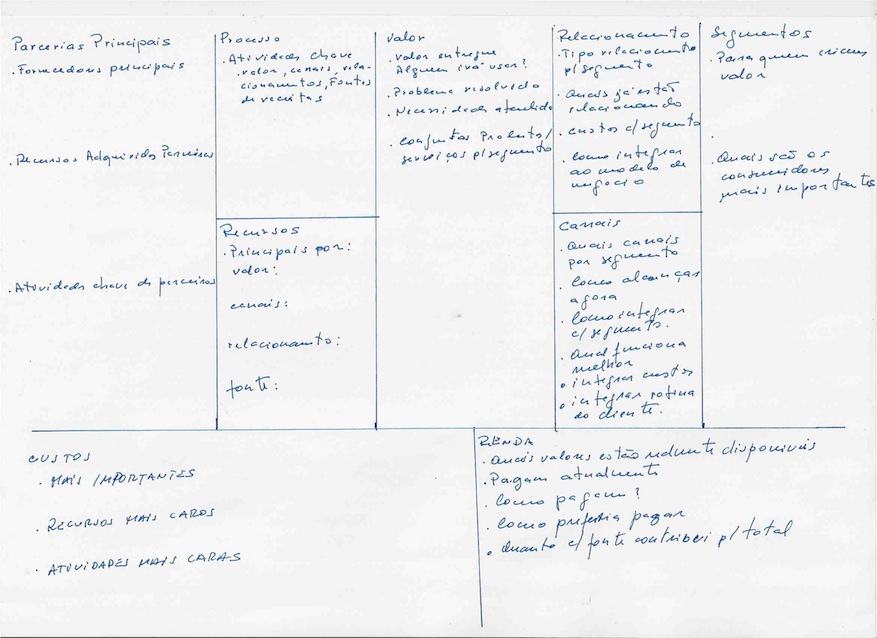 Parcerias Principais
. Fornecedores principais
. Recursos Adquiridos Parceiros
. Atividades chave de parceiros
Processo
. Atividades chave
. valor, canais, rela-
cionamentos, Fontes
de receitas
Recursos
. Principais por:
valor:
canais:
relacionamento:
fonte:
Valor
. valor entregue
Alguem irá usar?
. Problema resolvido
. Necessidades atendida
. conjuntos Produtos/
serviços p/segmento
Relacionamento
. Tipo relacionamento
p/segmento
. Quais já estão
relacionando
. custos c/segmento
. como integrar
ao modelo de
negocio
Canais
. Quais canais
por segmento
. Como alcanças
agora
. Como integrar
c/segmento.
. Qual funciona
melhor
. integrar custos
. integrar rotina
do cliente.
Segmentos
. Para quem criamos
valor
.
. Quais são os
consumidores
mais importantes
CUSTOS
. MAIS IMPORTANTES
. RECURSOS MAIS CAROS
. ATIVIDADES MAIS CARAS
RENDA
. Quais valores estão disponiveis
. Pagam atualmente
. Como pagam?
. Como preferia pagar
. Quanto c/fonte contribui p/ total